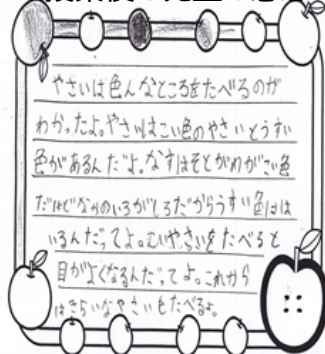 やさいは色んなところをたべるのが
わかったよ。やさいはこい色のやさいとうすい
色があるんだよ。なすはそとがわがこい色
だけどなかのいろがしろだからうすい色には
いるんだってよ。こいやさいをたべると
目がよくなるんだってよ。これから
はきらいなやさいもたべるよ。